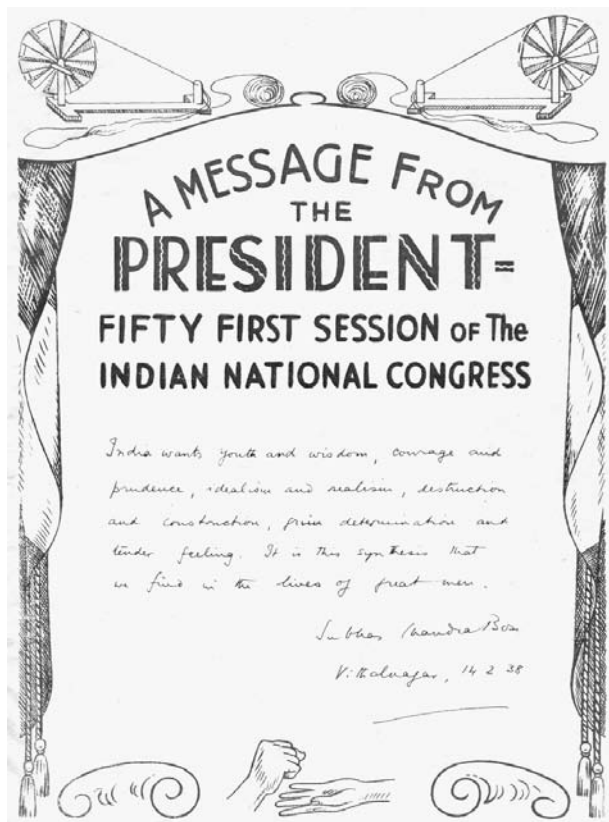 A MESSAGE FROM
THE
PRESIDENT=
FIFTY FIRST SESSION OF The
INDIAN NATIONAL CONGRESS
India wants youth and wisdom, courage and
prudence, idealism and realism, destruction
and construction, grim determination and
tender feeling. It is this synthesis that
we find in the lives of great men.
Subhas Chandra Bose
Vithalnagar, 14 2 38